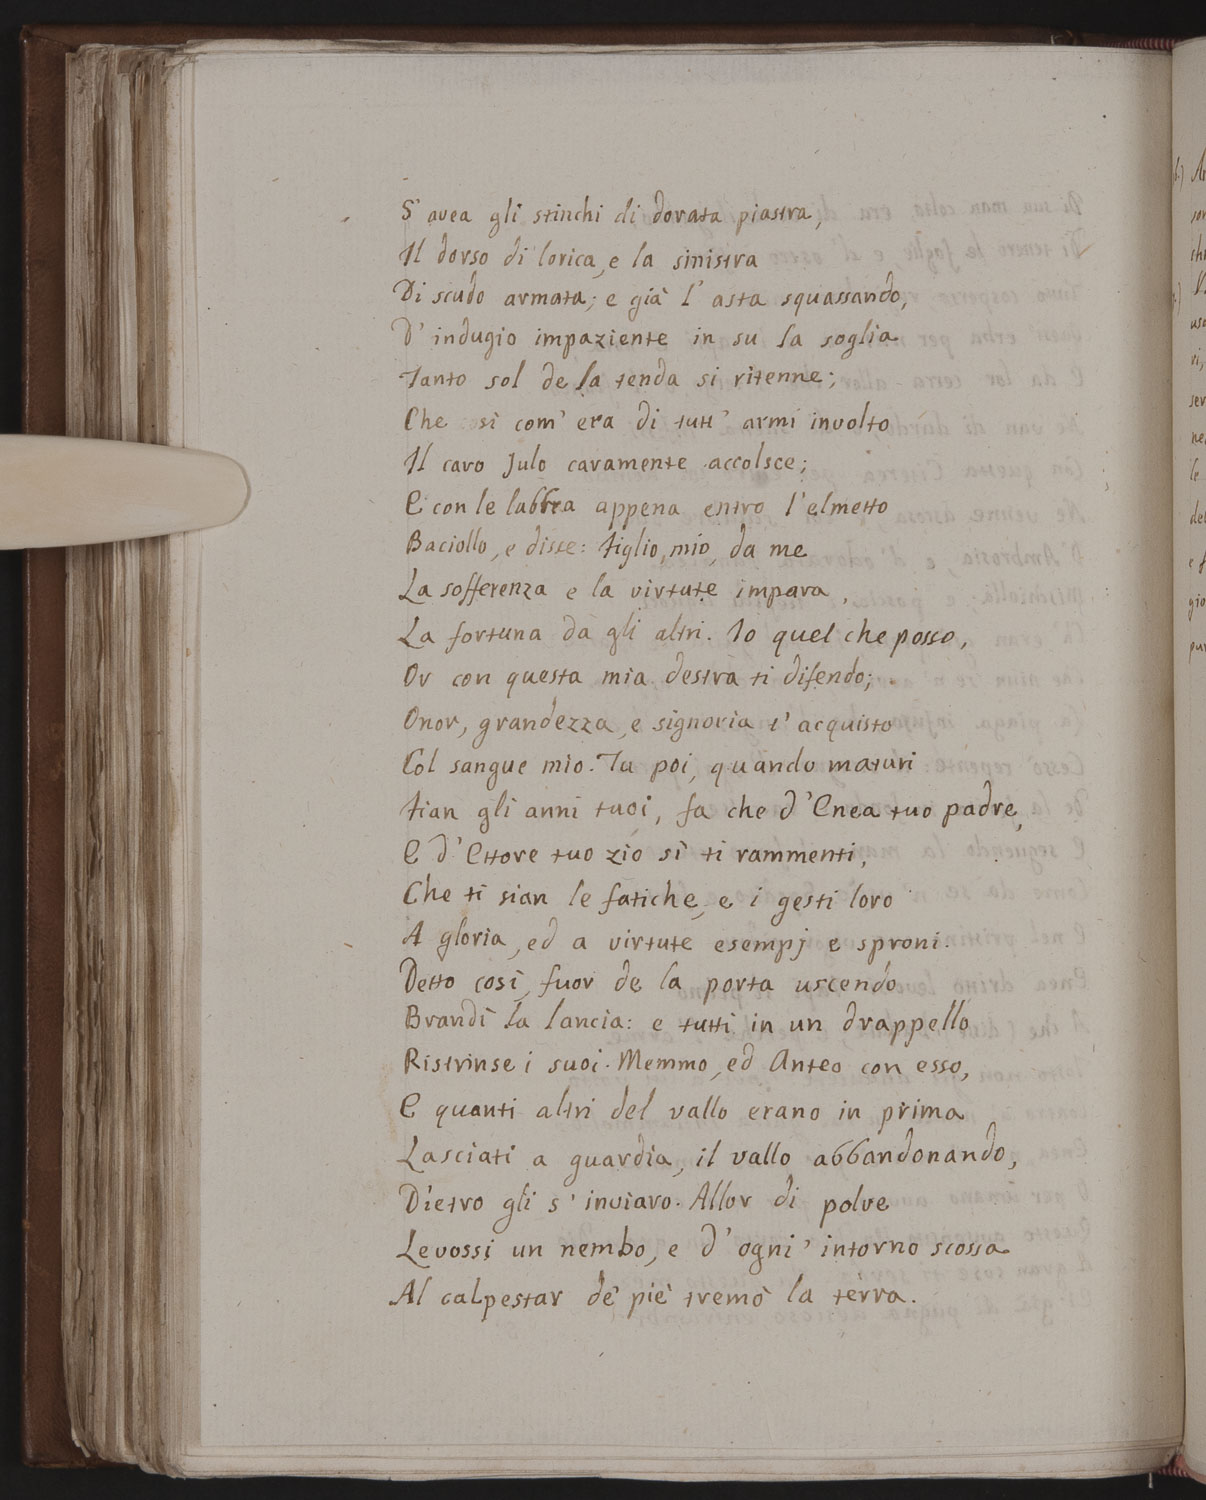 S' avea gli stinchi di dorata piastra,
Il dorso di lorica, e la sinistra
Di scudo armata; e già l' asta squassando,
D' indugio impaziente in su la soglia
Tanto sol de la tenda si ritenne;
Che così com' era di tutt' armi involto
Il caro Julo caramente accolsce;
E con le labbra appena entro l' elmetto
Baciollo, e disse: figlio mio, da me
La sofferenza e la virtute impara,
La fortuna da gli altri. Io quel che posso,
Or con questa mia destra ti difendo;
Onor, grandezza, e signoria t' acquisto
Col sangue mio. Tu poi, quando maturi
fian gli anni tuoi, fa che d' Enea tuo padre,
E d' Ettore tuo zio sì ti rammenti,
Che ti sian le fatiche, e i gesti loro
A gloria, ed a virtute esempj e sproni.
Detto così, fuor de la porta uscendo
Brandì la lancia: e tutti in un drappello
Ristrinse i suoi. Memmo, ed Anteo con esso,
E quanti altri del vallo erano in prima
Lasciati a guardia, il vallo abbandonando,
Dietro gli s' inviaro. Allor di polve
Levossi un nembo, e d' ogni' intorno scossa
Al calpestar de' piè tremò la terra.